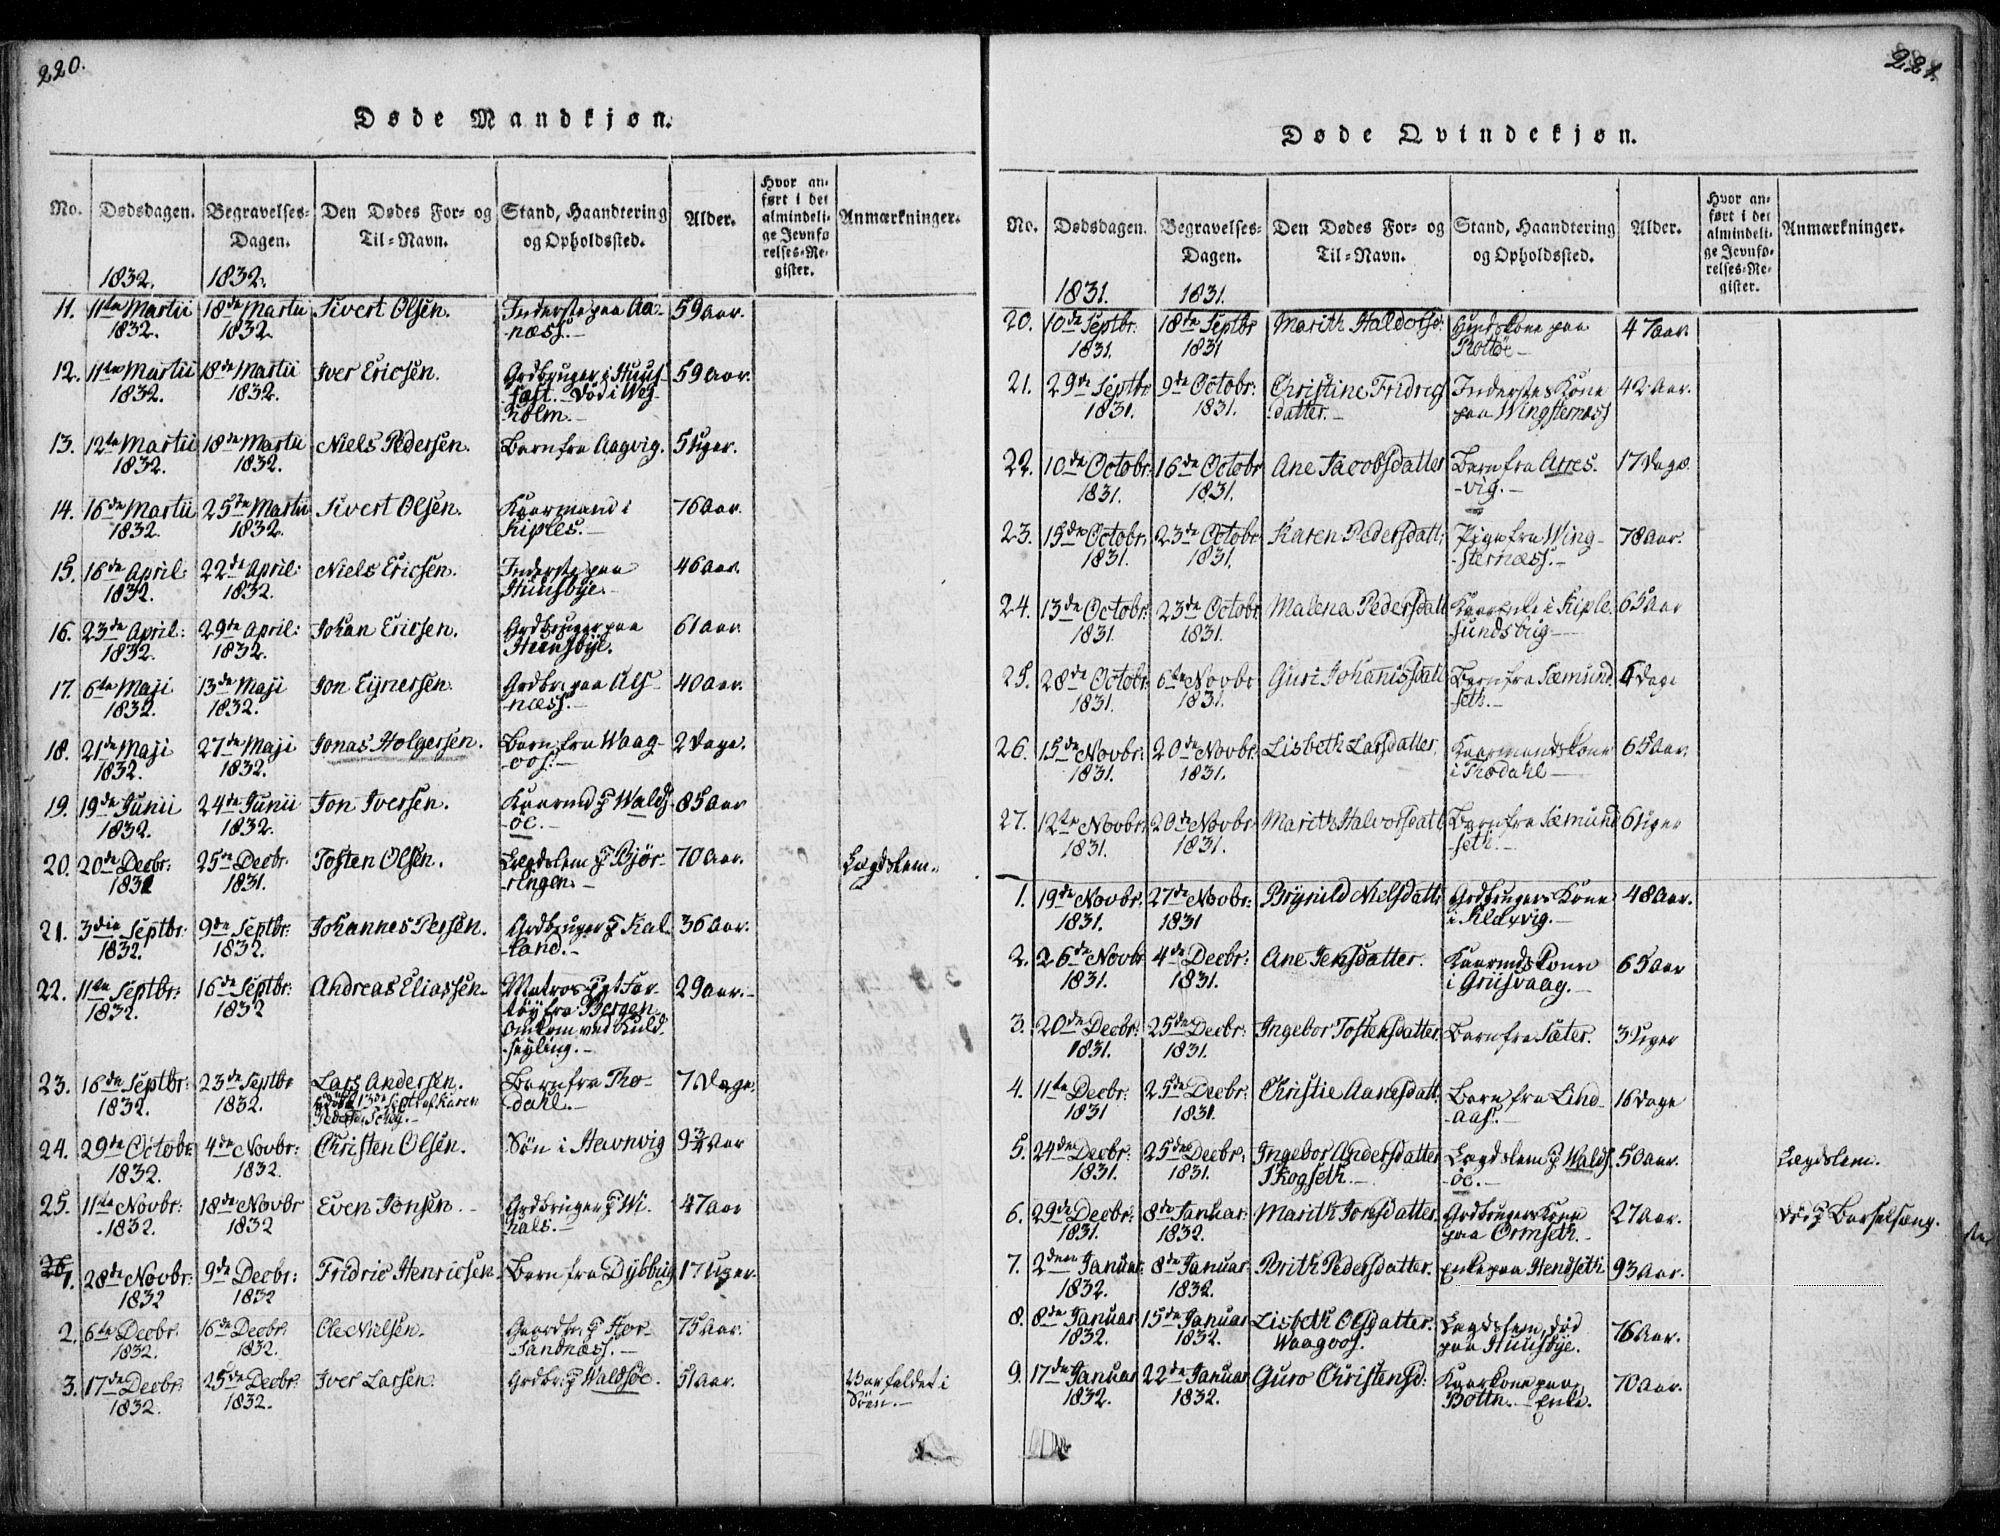 220.
Døde Mandkjøn.
No. Dødsdagen. Begravelses-Dagen. Den Dødes For- og Til-Navn. Stand, Haandtering og Opholdssted. Alder. Hvor anført i det almindelige Jevnførelses-Register. Anmærkninger.
1832. 1832.
11. 11te Martii 18de Martii Sivert Olsen. Inderste paa Aa- 59 Aar.
1832. 1832. næss.
12. 11te Martii 18de Martii Iver Ericsen. Grdbruger i Huus- 59 Aar.
1832. 1832. fast. Død i Weg-
holm.
13. 12te Martii 18de Martii Niels Pedersen. Barn fra Aagvig. 5 Uger.
1832. 1832.
14. 16de Martii 25de Martii Sivert Olsen. Kaarmand i 76 Aar.
1832. 1832. Kiples.
15. 16de April: 22de April: Niels Ericsen. Inderste paa 46 Aar.
1832. 1832. Huusbye.
16. 23de April: 29de April: Johan Ericsen. Grdbruger paa 61 Aar.
1832. 1832. Huusbye.
17. 6te Maji 13de Maji Jon Ejnersen. Grdbr: paa Als- 40 Aar.
1832. 1832. næss.
18. 21de Maji 27de Maji Jonas Holgersen. Barn fra Waag- 2 Dage.
1832. 1832. oos.
19. 19de Junii 24de Junii Jon Iversen. Kaarmd p Walds- 85 Aar
1832. 1832. øe.
20. 20de Decbr: 25de Decbr. Tosten Olsen. Lægdslem p Bjør- 70 Aar. Lægdslem.
1831 1831. ringen.
21. 3die Septbr: 9de Septbr: Johannes Persen. Grdbruger p Kal- 36 Aar.
1832. 1832. land.
22. 11te Septbr: 16de Septbr: Andreas Eliassen. Matros p et Far- 29 Aar.
1832. 1832 tøy fra Bergen
omkom ved Kuld-
seyling.
23. 16de Septbr: 23de Septbr Lars Andersen. Barn fra Tho- 7 Dage.
1832. 1832. dahl.
24. 29de Octobr: 4de Novbr: Christen Olsen. Søn i Havnvig 9¾ Aar
1832. 1832.
25. 11te Novbr: 18de Novbr Even Jonsen. Grdbruger p Wi- 47 Aar
1832. 1832 hals.
26 1. 28de Novbr: 9de Decbr: Fridric Henricsen Barn fra Dybbvig 17 Uger.
1832 1832
2. 6te Decbr: 16de Decbr: Ole Nielsen. 75 Aar.
1832. 1832. -Sandnæss.
3. 17de Decbr: 25de Decbr: Iver Larsen. Grdbr: p Waldsøe. 51 Aar. Var faldet i
1832. 1832. Søen.
221.
Døde Qvindekjøn.
No. Dødsdagen. Begravelses-Dagen. Den Dødes For- og Til-Navn. Stand, Haandtering og Opholdssted. Alder. Hvor anført i det almindelige Jevnførelses-Register. Anmærkninger.
1831. 1831.
20. 10de Septbr: 18de Septbr Marith Haldorsd: Huuskone paa 47 Aar
1831. 1831 Roltøe
21. 29de Septbr 9de Octobr: Christine Fridrics Inderstes Kone 42 Aar.
1831. 1831. datter. paa Wingsternæss
22. 10de Octobr: 16de Octobr Ane Jacobsdatter Barn fra Arres- 17 Dage.
1831. 1831. -vig.
23. 15de Octobr: 23de Octobr Karen Pedersdatt: Pige fra Wing- 78 Aar.
1831. 1831. -sternæss.
24. 13de Octobr: 23de Octobr Malena Pedersdatt Kaarenke i Kiple- 65 Aar
1831. 1831. sundsvig
25. 28de Octobr: 6te Novbr Guri Johanisdatt Barn fra Sæmund- 6 Dage
1831. 1831. seth.
26. 15de Novbr: 20de Novbr: Lisbeth Larsdatter. Kaarmands Kone 65 Aar.
1831. 1831. i Thodahl
27. 12te Novbr: 20de Novbr: Marith Halvorsdatt Barn fra Sæmund 6 Uger
1831. 1831. seth.
1. 19de Novbr. 27de Novbr: Brynild Nielsdatt: Grdbrugers Kone 48 Aar.
1831. 1831 i Kladvig.
2. 26de Novbr 4de Decbr: Ane Jensdatter. Kaarmds Kone 65 Aar
1831. 1831. i Griisvaag.
3. 20de Decbr: 25de Decbr: Ingebor Tostensdatter. Barn fra Sæter. 3 Uger
1831. 1831.
4. 11te Decbr: 25de Decbr: Christie Aanesdatt. Barn fra Lind- 16 Dage
1831 1831. -aas.
5. 24de Decbr: 25de Decbr: Ingebor Andersdatter Lægdslem p Walds- 50 Aar. Lægdslem.
1831. 1831. Skogseth. øe.
6. 29de Decbr: 8de Januar: Marith Jonsdatter. Grdbrugers Kone 27 Aar. død p Barselseng.
1831. 1832. paa Ormseth.
7. 2den Januar: 8de Januar Brith Pedersdatter. Enke paa Hendseth 93 Aar.
1832. 1832.
8. 8de Januar 15de Januar Lisbeth Olsdatter. Lægdslem, død 76 Aar.
1832. 1832. Waagoos. paa Huusbye.
9. 17de Januar 22de Januar Guro Christensd: Kaarkone paa 70 Aar.
1832. 1832. Bottn. Enke.